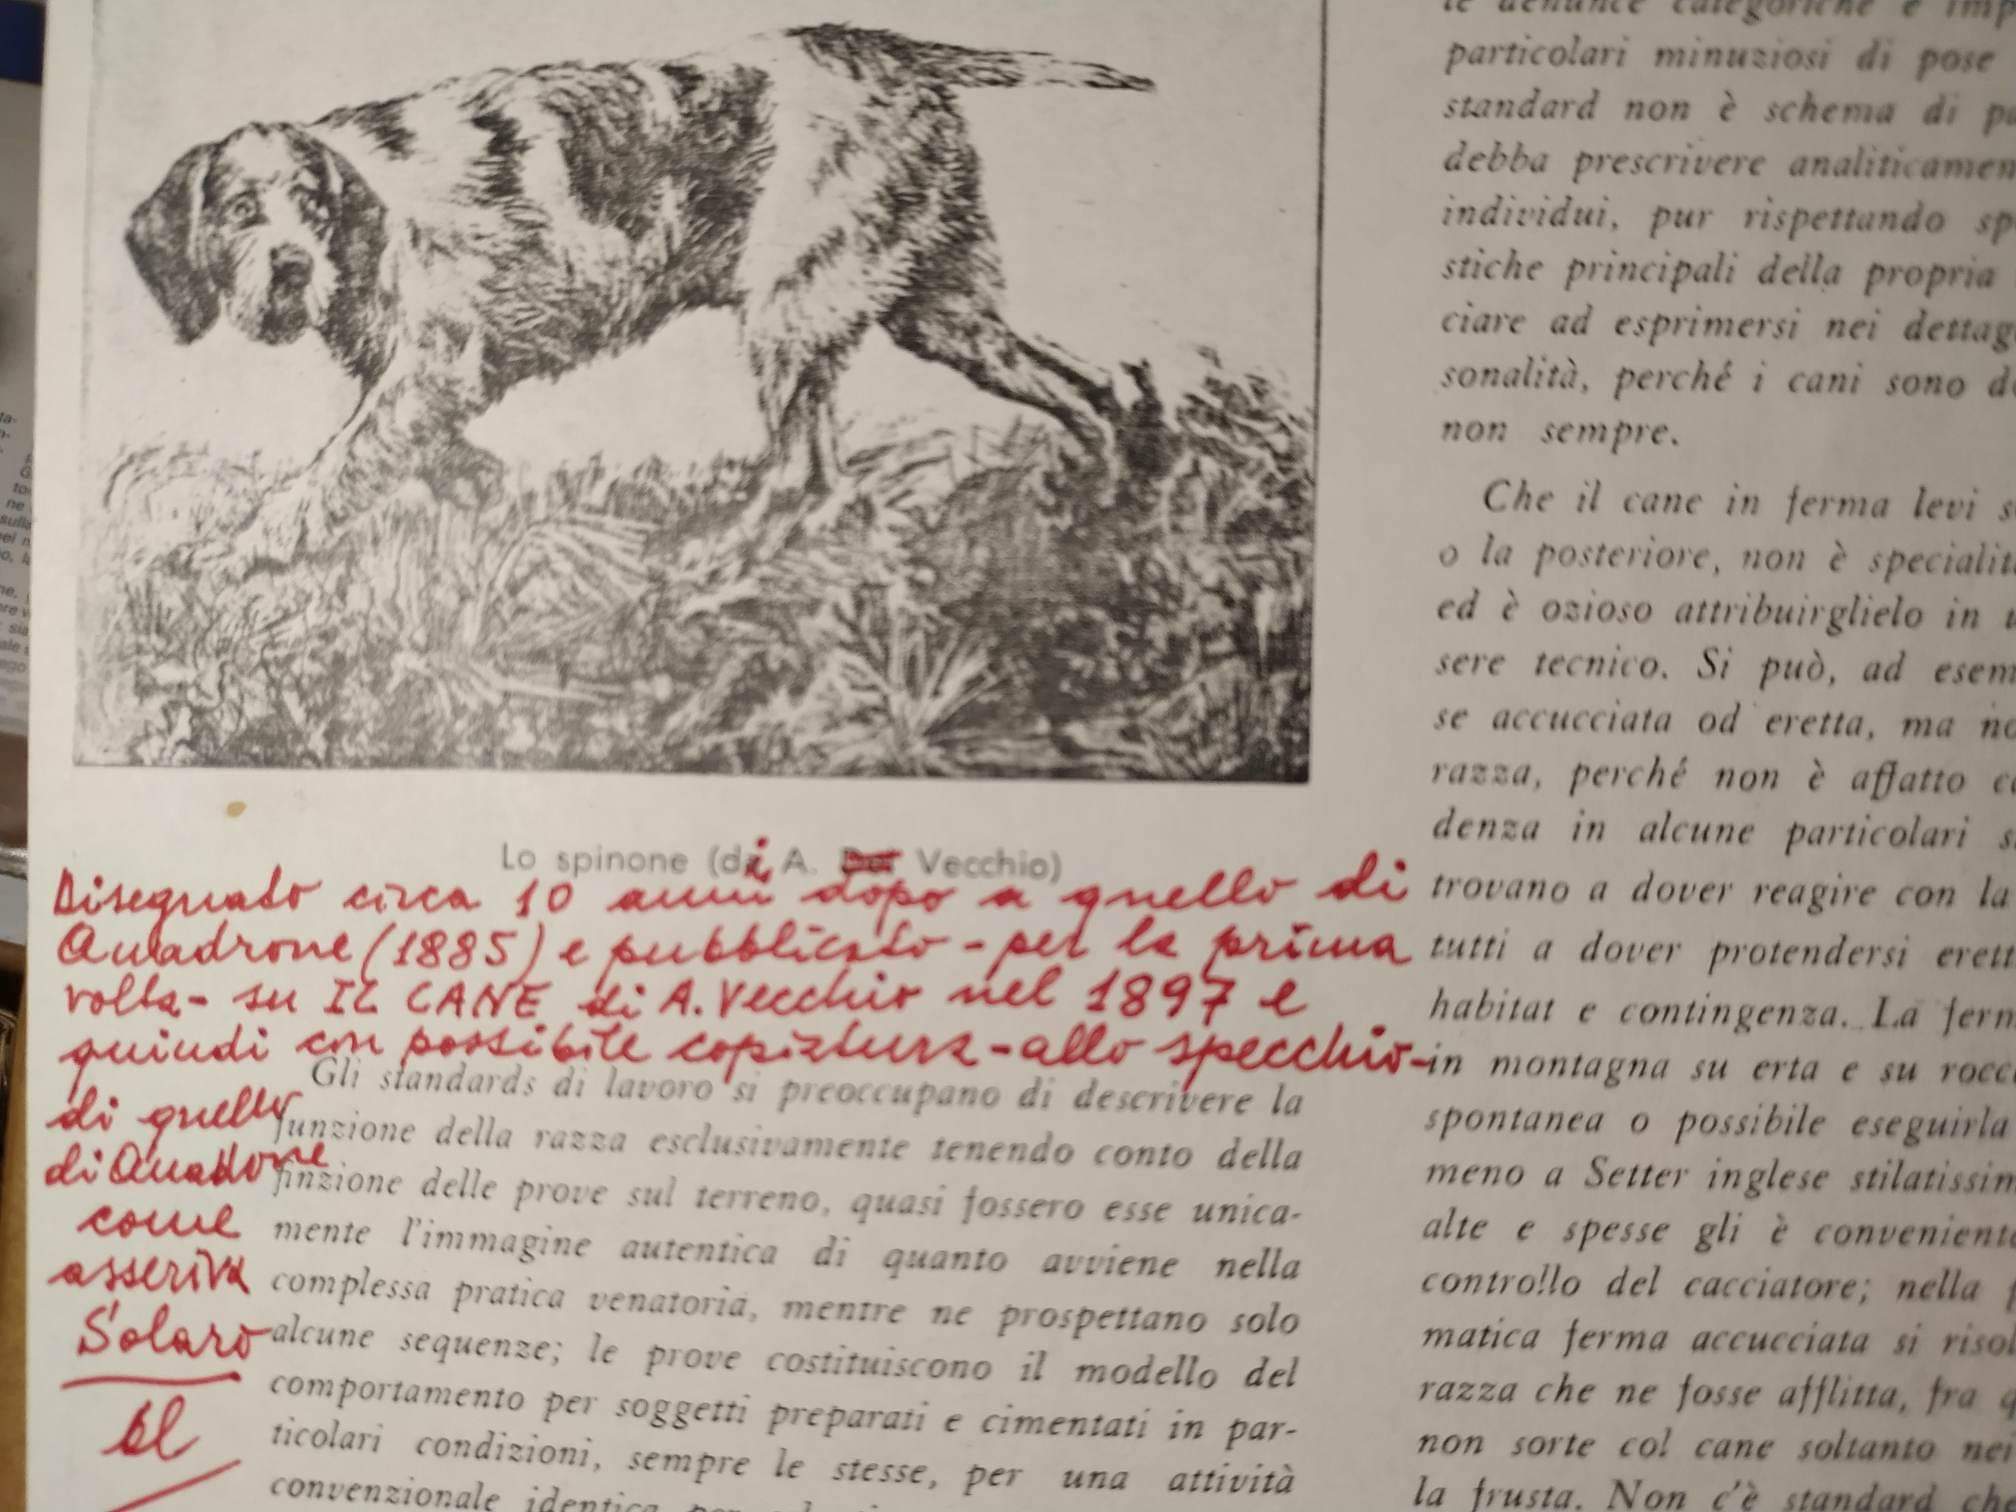 Lo spinone (di A. Vecchio)
Disegnato circa 10 anni dopo a quello di
Quadrone (1885) e pubblicato - per la prima
volta - su IL CANE di A. Vecchio nel 1897 e
quindi con possibile copiatura - allo specchio -
di quello
di Quadrone
come
asseriva
Solaro
Gli standards di lavoro si preoccupano di descrivere la
funzione della razza esclusivamente tenendo conto della
finzione delle prove sul terreno, quasi fossero esse unica-
mente l'immagine autentica di quanto avviene nella
complessa pratica venatoria, mentre ne prospettano solo
alcune sequenze; le prove costituiscono il modello del
comportamento per soggetti preparati e cimentati in par-
ticolari condizioni, sempre le stesse, per una attività
convenzionale identica
le denunce categoriche e
particolari minuziosi di pose
standard non è schema di
debba prescrivere
individui, pur rispettando
stiche principali della propria
ciare ad esprimersi nei
sonalità, perché i cani sono
non sempre.
Che il cane in ferma levi
o la posteriore, non è
ed è ozioso attribuirglielo in
sere tecnico. Si può, ad
se accucciata od eretta, ma
razza, perché non è affatto
denza in alcune particolari
trovano a dover reagire con la
tutti a dover protendersi
habitat e contingenza. La
in montagna su erta e su
spontanea o possibile eseguirla
meno a Setter inglese
alte e spesse gli è
controllo del cacciatore; nella
matica ferma accucciata si
razza che ne fosse afflitta, fra
non sorte col cane soltanto
la frusta. Non c'è standard